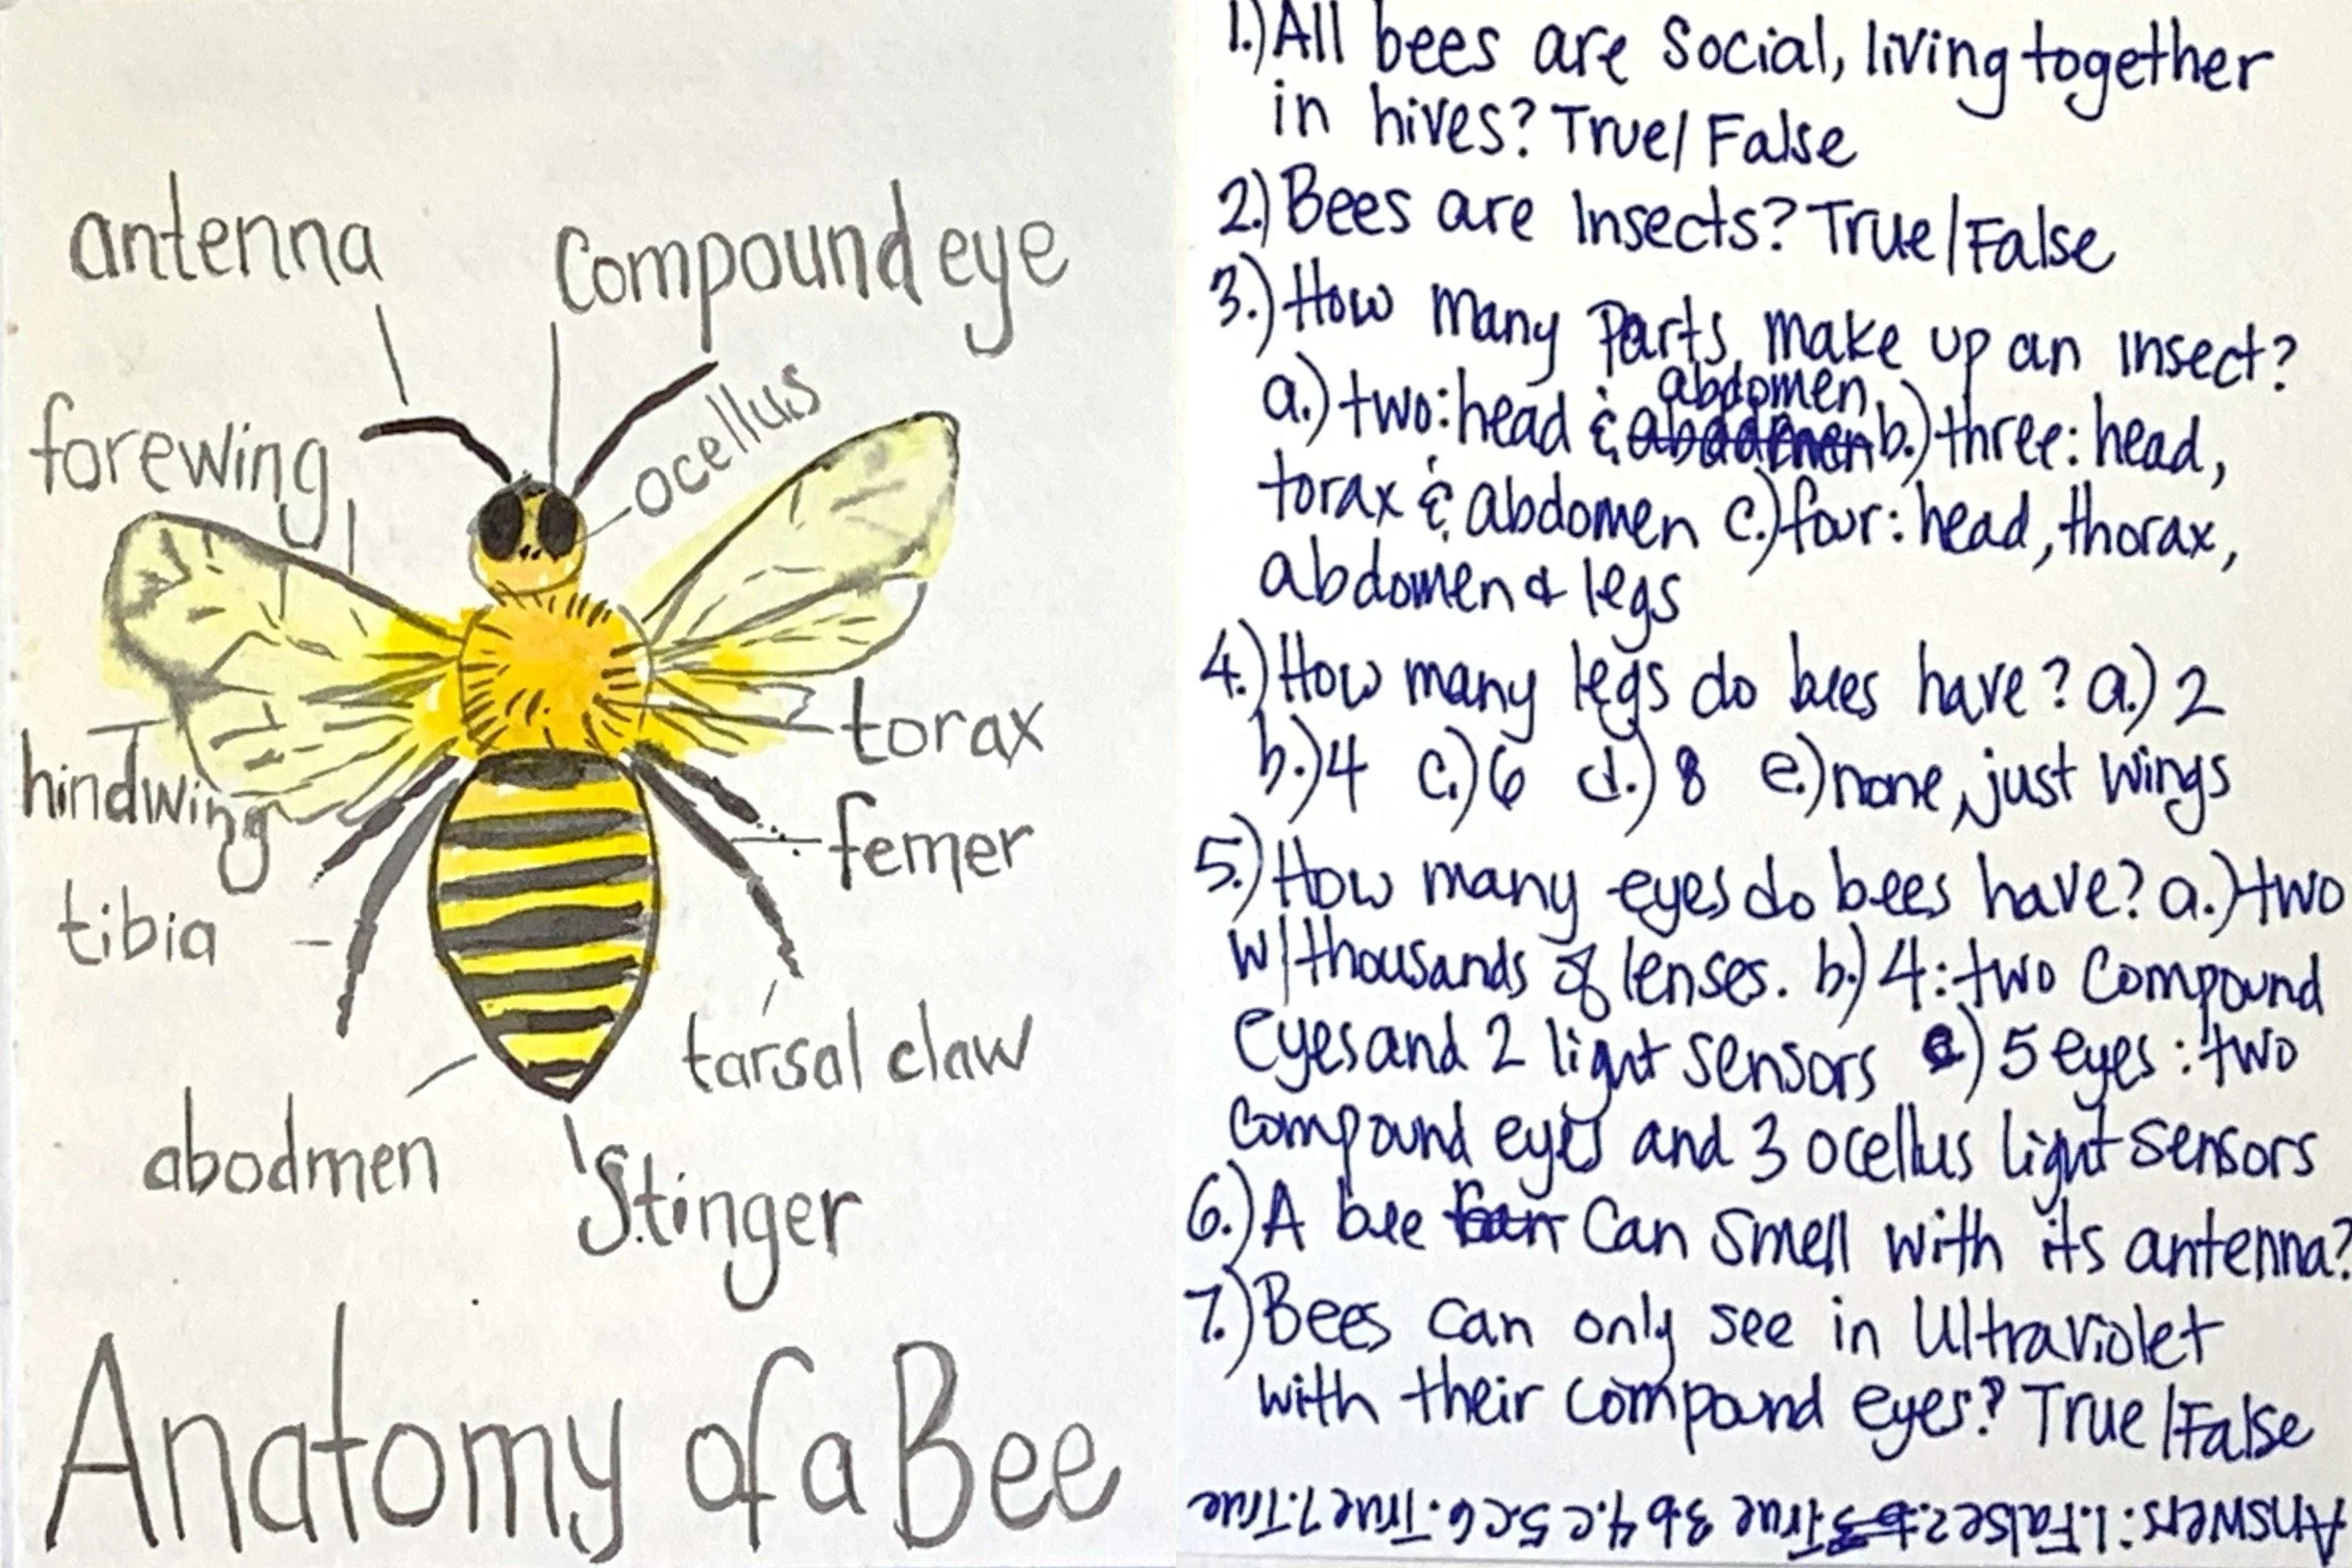 antenna
compound eye
ocellus
forewing
hindwing
torax
femer
tibia
tarsal claw
abodmen
Stinger
Anatomy of a Bee
1.) All bees are Social, living together
in hives? True/False
2.) Bees are Insects? True/False
3.) How many Parts make up an insect?
abdomen
a.) two: head & abddmen b.) three: head,
torax & abdomen c.) four: head, thorax,
abdomen & legs
4.) How many legs do bees have? a.) 2
b.) 4 c.) 6 d.) 8 e.) none, just wings
5.) How many eyes do bees have? a.) two
w/ thousands of lenses. b.) 4: two Compound
eyes and 2 light sensors c) 5 eyes: two
compound eyes and 3 ocellus light sensors
6.) A bee can Can Smell with its antenna?
7.) Bees can only see in Ultraviolet
with their compound eyes? True/False
Answers: 1. False 2. True 3 b 4. c 5. c 6. True 7. True